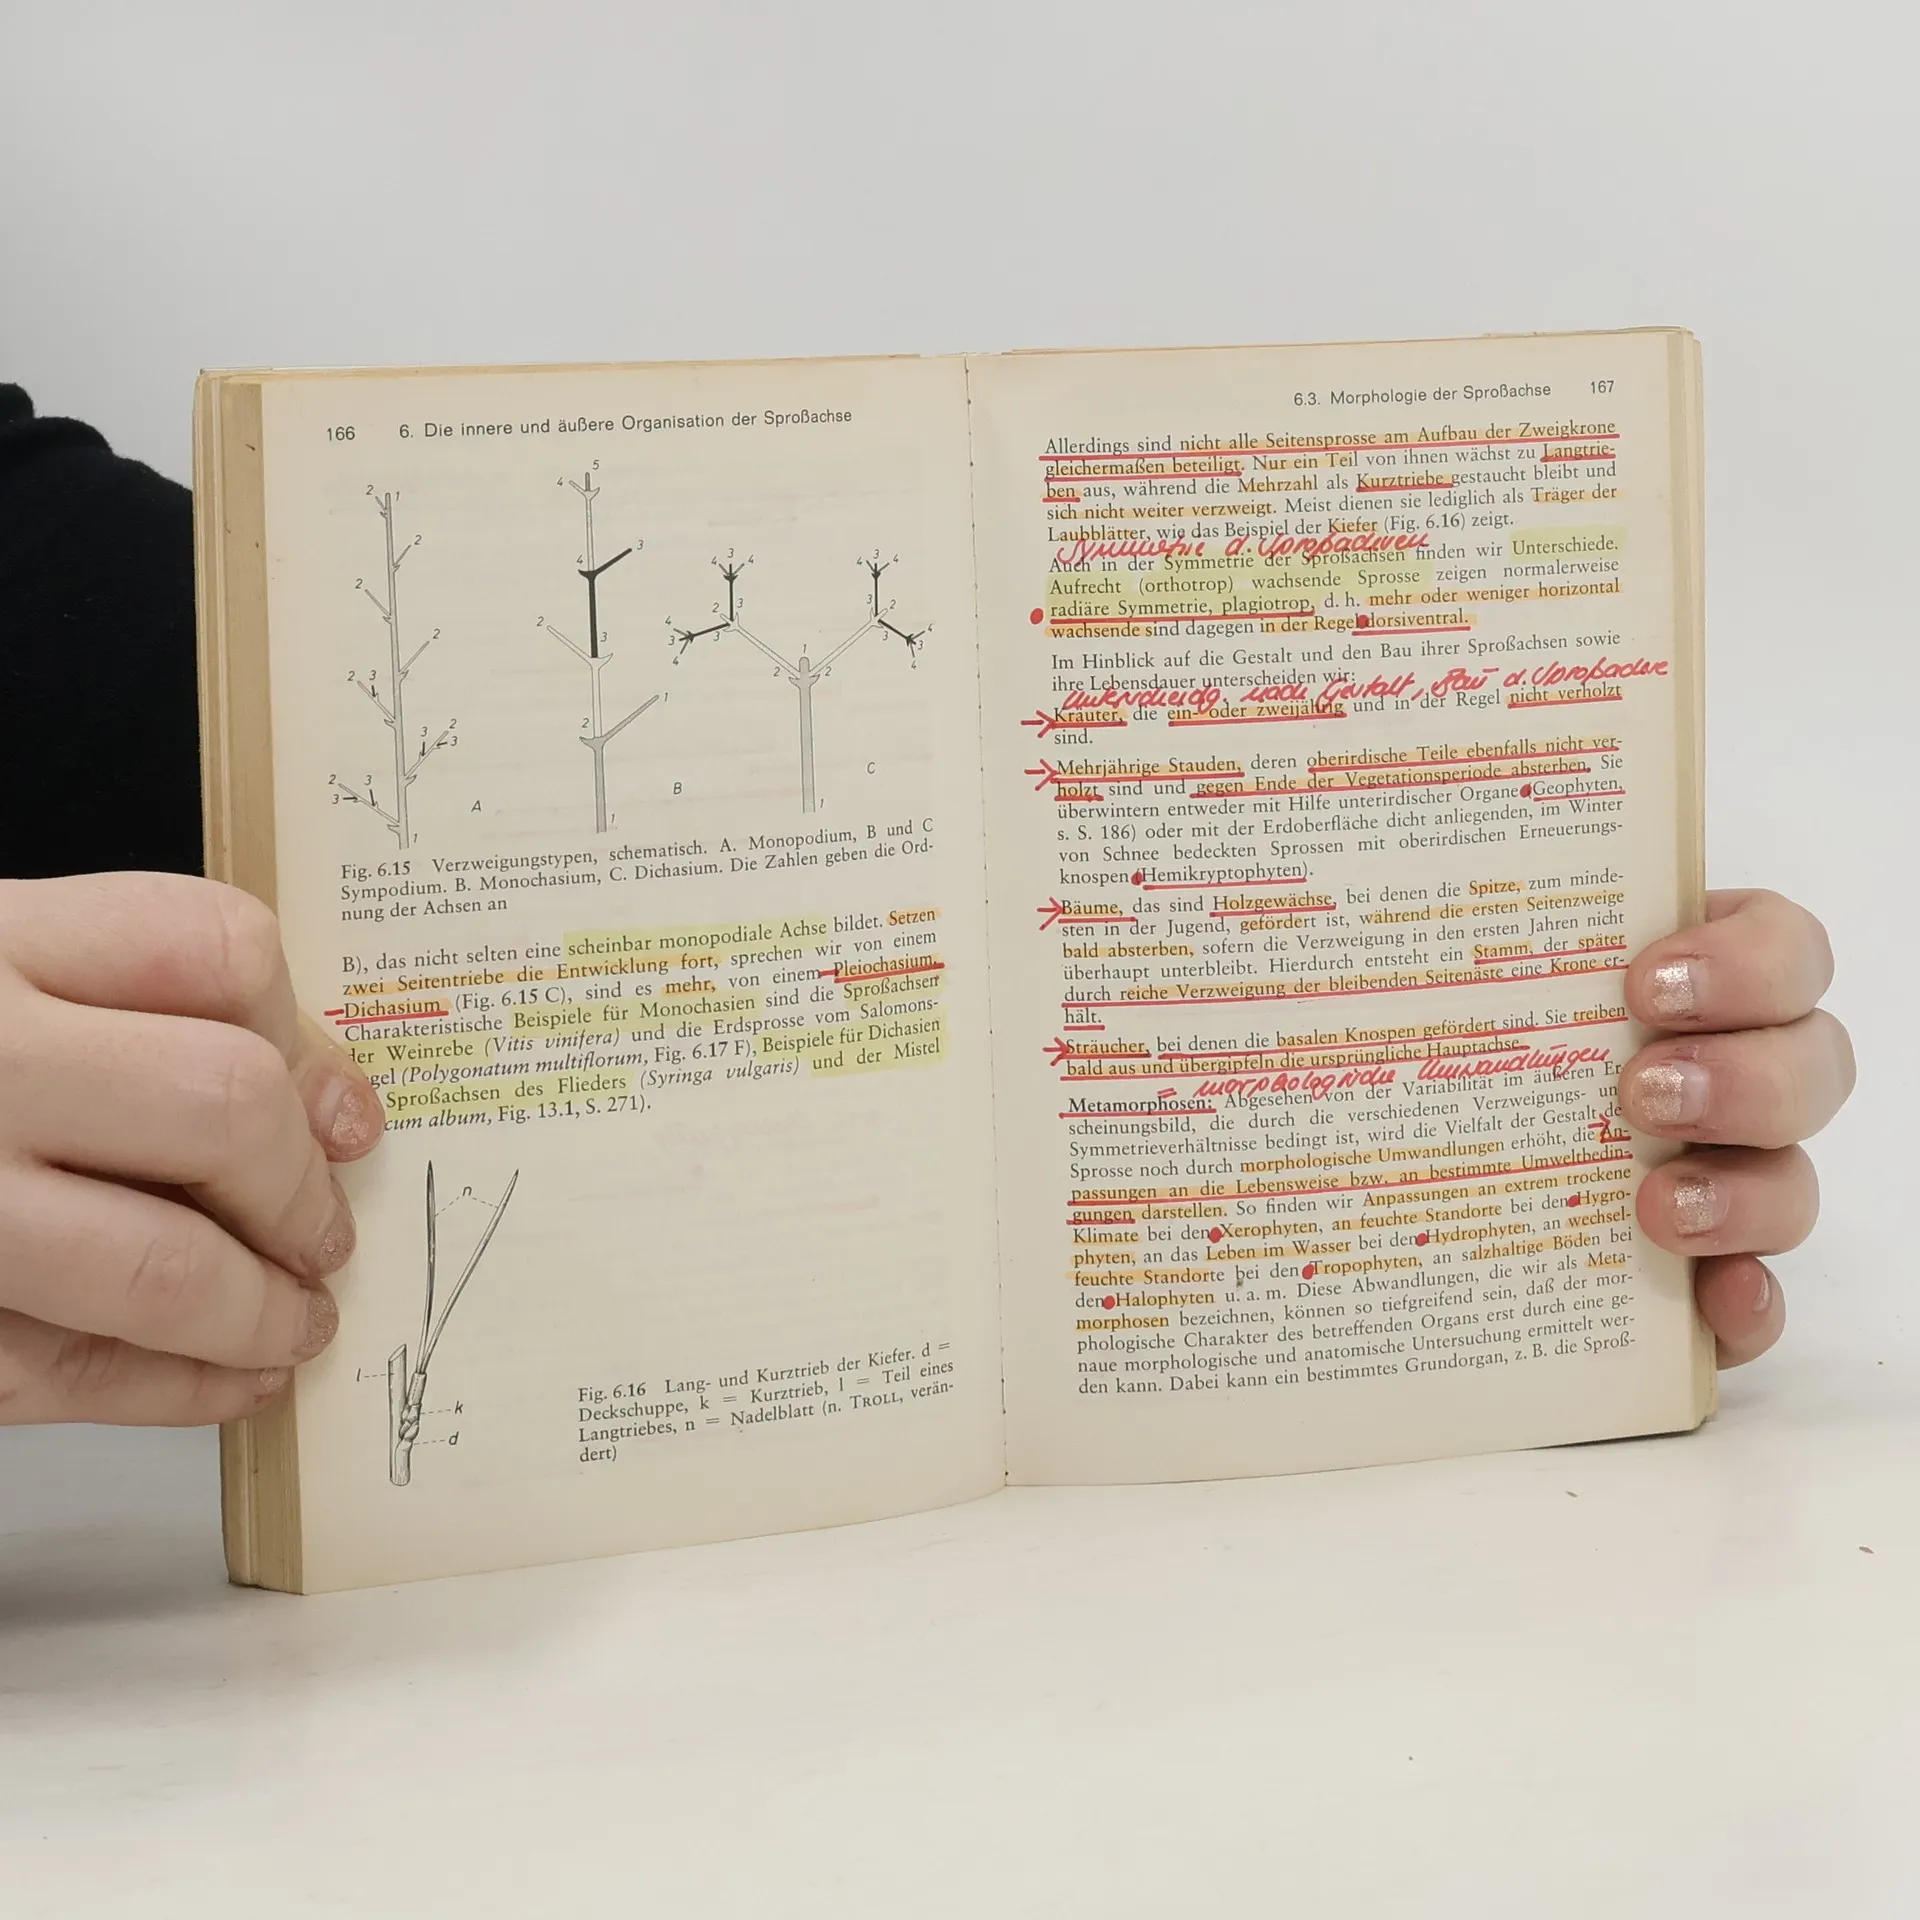 166 6. Die innere und äußere Organisation der Sproßachse
2 1 2 2 2 2 3 2 3 3 2 3 3 1 A
5 4 3 4 2 3 1 2 1 B
3 4 4 2 3 4 3 3 4 3 4 4 3 2 4 3 4 1 2 2 1 C
Fig. 6.15 Verzweigungstypen, schematisch. A. Monopodium, B und C
Sympodium. B. Monochasium, C. Dichasium. Die Zahlen geben die Ord-
nung der Achsen an
B), das nicht selten eine scheinbar monopodiale Achse bildet. Setzen
zwei Seitentriebe die Entwicklung fort, sprechen wir von einem
Dichasium (Fig. 6.15 C), sind es mehr, von einem Pleiochasium.
Charakteristische Beispiele für Monochasien sind die Sproßachsen
der Weinrebe (Vitis vinifera) und die Erdsprosse vom Salomons-
gel (Polygonatum multiflorum, Fig. 6.17 F), Beispiele für Dichasien
Sproßachsen des Flieders (Syringa vulgaris) und der Mistel
cum album, Fig. 13.1, S. 271).
n
l
k
d
Fig. 6.16 Lang- und Kurztrieb der Kiefer. d =
Deckschuppe, k = Kurztrieb, l = Teil eines
Langtriebes, n = Nadelblatt (n. TROLL, verän-
dert)
6.3. Morphologie der Sproßachse 167
Allerdings sind nicht alle Seitensprosse am Aufbau der Zweigkrone
gleichermaßen beteiligt. Nur ein Teil von ihnen wächst zu Langtrie-
ben aus, während die Mehrzahl als Kurztriebe gestaucht bleibt und
sich nicht weiter verzweigt. Meist dienen sie lediglich als Träger der
Laubblätter, wie das Beispiel der Kiefer (Fig. 6.16) zeigt.
Symmetrie d. Sproßachsen
Auch in der Symmetrie der Sproßachsen finden wir Unterschiede.
Aufrecht (orthotrop) wachsende Sprosse zeigen normalerweise
radiäre Symmetrie, plagiotrop, d. h. mehr oder weniger horizontal
wachsende sind dagegen in der Regel dorsiventral.
Im Hinblick auf die Gestalt und den Bau ihrer Sproßachsen sowie
ihre Lebensdauer unterscheiden wir:
Unterscheidg. nach Gestalt, Bau d. Sproßachse
Kräuter, die ein- oder zweijährig und in der Regel nicht verholzt
sind.
Mehrjährige Stauden, deren oberirdische Teile ebenfalls nicht ver-
holzt sind und gegen Ende der Vegetationsperiode absterben. Sie
überwintern entweder mit Hilfe unterirdischer Organe (Geophyten,
s. S. 186) oder mit der Erdoberfläche dicht anliegenden, im Winter
von Schnee bedeckten Sprossen mit oberirdischen Erneuerungs-
knospen (Hemikryptophyten).
Bäume, das sind Holzgewächse, bei denen die Spitze, zum minde-
sten in der Jugend, gefördert ist, während die ersten Seitenzweige
bald absterben, sofern die Verzweigung in den ersten Jahren nicht
überhaupt unterbleibt. Hierdurch entsteht ein Stamm, der später
durch reiche Verzweigung der bleibenden Seitenäste eine Krone er-
hält.
Sträucher, bei denen die basalen Knospen gefördert sind. Sie treiben
bald aus und übergipfeln die ursprüngliche Hauptachse.
= morphologische Umwandlungen
Metamorphosen: Abgesehen von der Variabilität im äußeren Er
scheinungsbild, die durch die verschiedenen Verzweigungs- un
Symmetrieverhältnisse bedingt ist, wird die Vielfalt der Gestalt de
Sprosse noch durch morphologische Umwandlungen erhöht, die An-
passungen an die Lebensweise bzw. an bestimmte Umweltbedin-
gungen darstellen. So finden wir Anpassungen an extrem trockene
Klimate bei den Xerophyten, an feuchte Standorte bei den Hygro-
phyten, an das Leben im Wasser bei den Hydrophyten, an wechsel-
feuchte Standorte bei den Tropophyten, an salzhaltige Böden bei
den Halophyten u. a. m. Diese Abwandlungen, die wir als Meta-
morphosen bezeichnen, können so tiefgreifend sein, daß der mor-
phologische Charakter des betreffenden Organs erst durch eine ge-
naue morphologische und anatomische Untersuchung ermittelt wer-
den kann. Dabei kann ein bestimmtes Grundorgan, z. B. die Sproß-